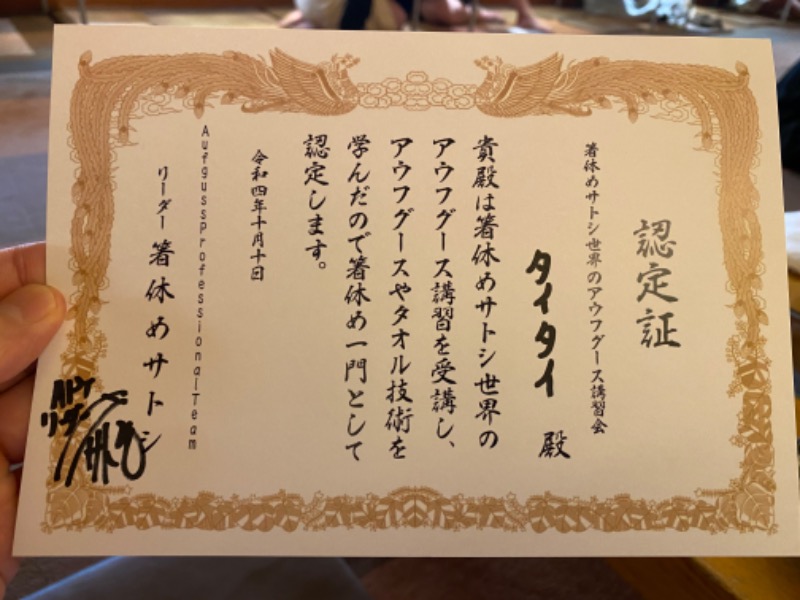 認定証
箸休めサトシ世界のアウフグース講習会
タイタイ 殿
貴殿は箸休めサトシ世界の
アウフグース講習を受講し、
アウフグースやタオル技術を
学んだので箸休め一門として
認定します。
令和四年十月十日
AufgussProfessionalTeam
リーダー 箸休めサトシ
APT
リーダー